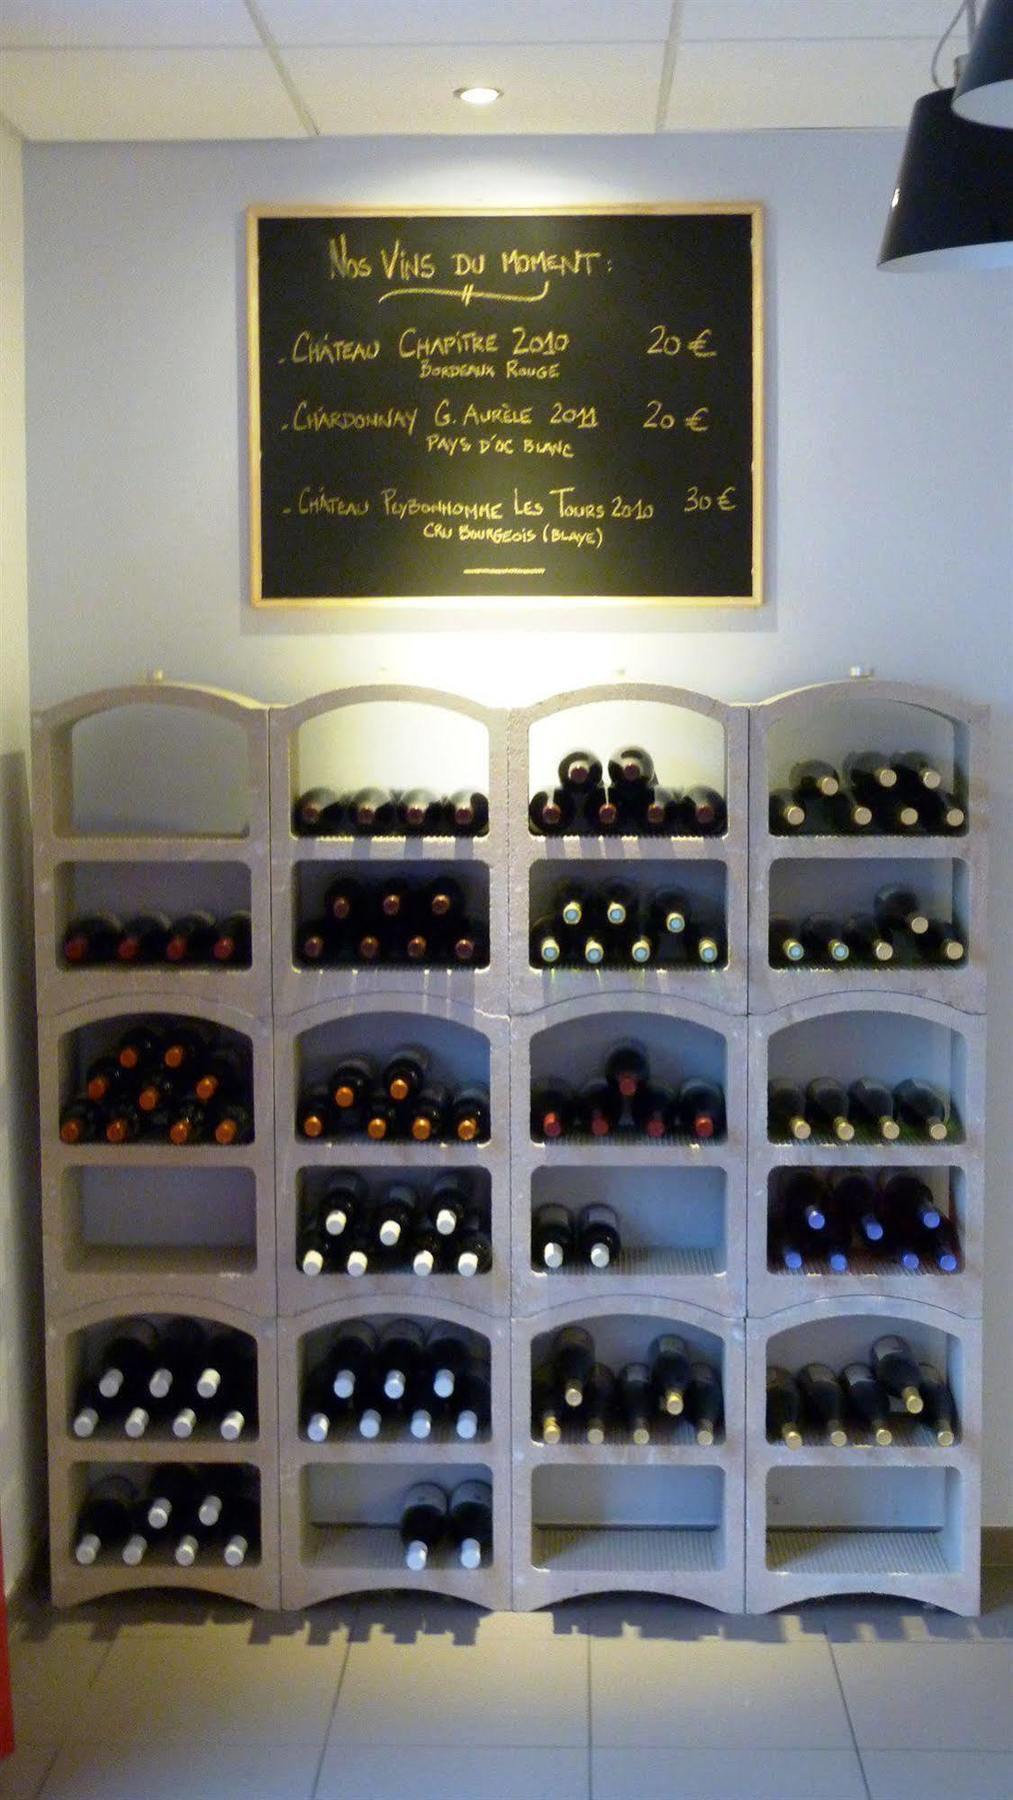 Nos Vins du moment :
- Château Chapître 2010 20 €
Bordeaux Rouge
- Chardonnay G. Aurèle 2011 20 €
Pays d'Oc Blanc
- Château Peybonhomme Les Tours 2010 30 €
Cru Bourgeois (Blaye)